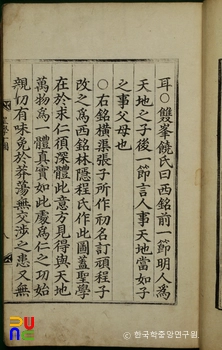 耳○雙峯饒氏曰西銘前一節明人爲
天地之子後一節言人事天地當如子
之事父母也
○右銘橫渠張子所作初名訂頑程子
改之爲西銘林隱程氏作此圖蓋聖學
在於求仁須深體此意方見得與天地
萬物爲一體眞實如此處爲仁之功始
親切有味免於莽蕩無交涉之患又無
한국학중앙연구원